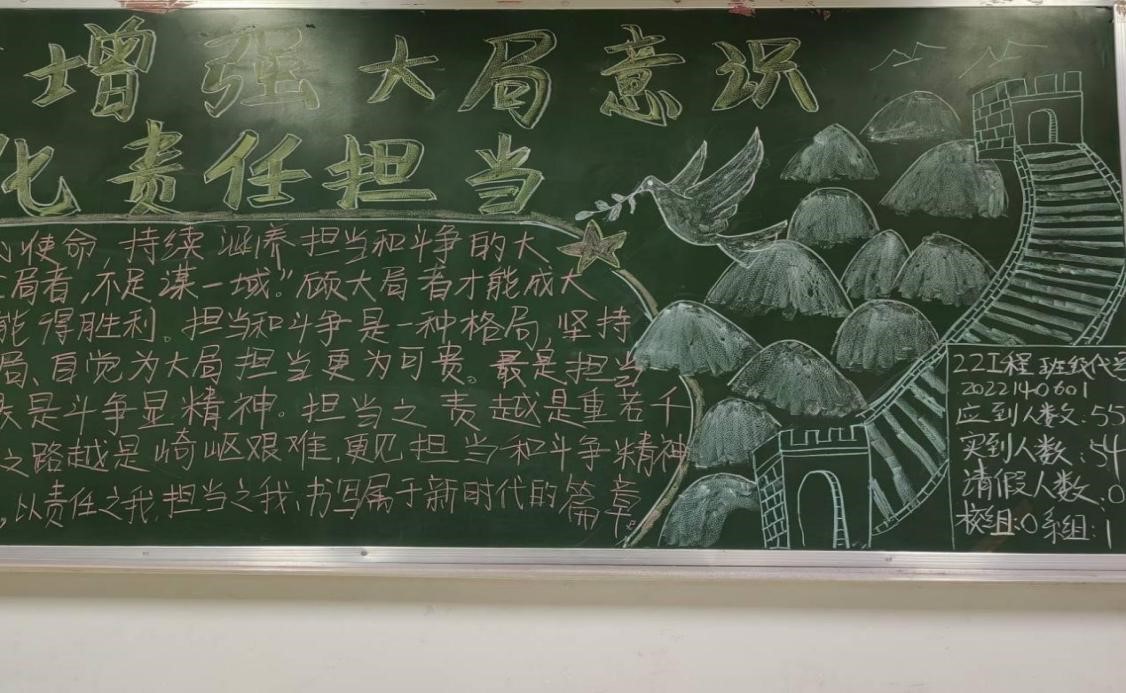 增强大局意识
化责任担当
使命,持续涵养担当和斗争的大
局者,不足谋一域。”顾大局者才能成大
能得胜利。担当和斗争是一种格局,坚持
局、自觉为大局担当更为可贵。最是担当
是斗争显精神。担当之责越是重若千
之路越是崎岖艰难,更见担当和斗争精神
,以责任之我、担当之我,书写属于新时代的篇章。
22工程 班级代号
2022140601
应到人数:55
实到人数:54
请假人数:0
校组:0 系组:1